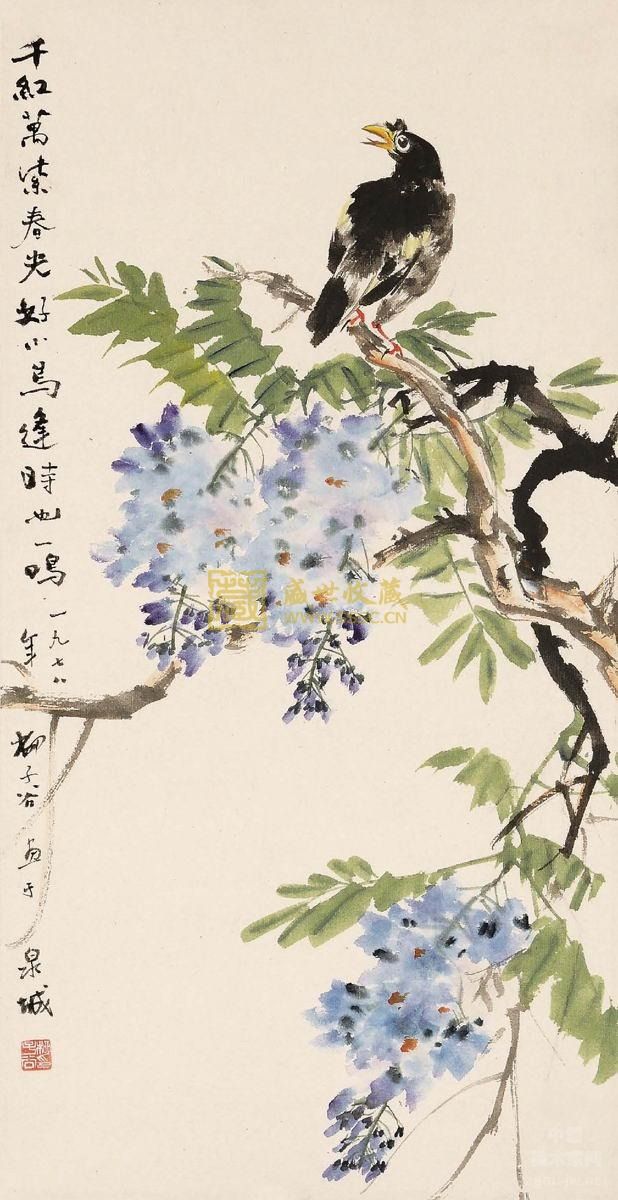 千紅萬紫春光好小鳥逢時也一鳴一九七八
年
柳子谷画于泉城
盛世收藏
WWW.SSSC.CN